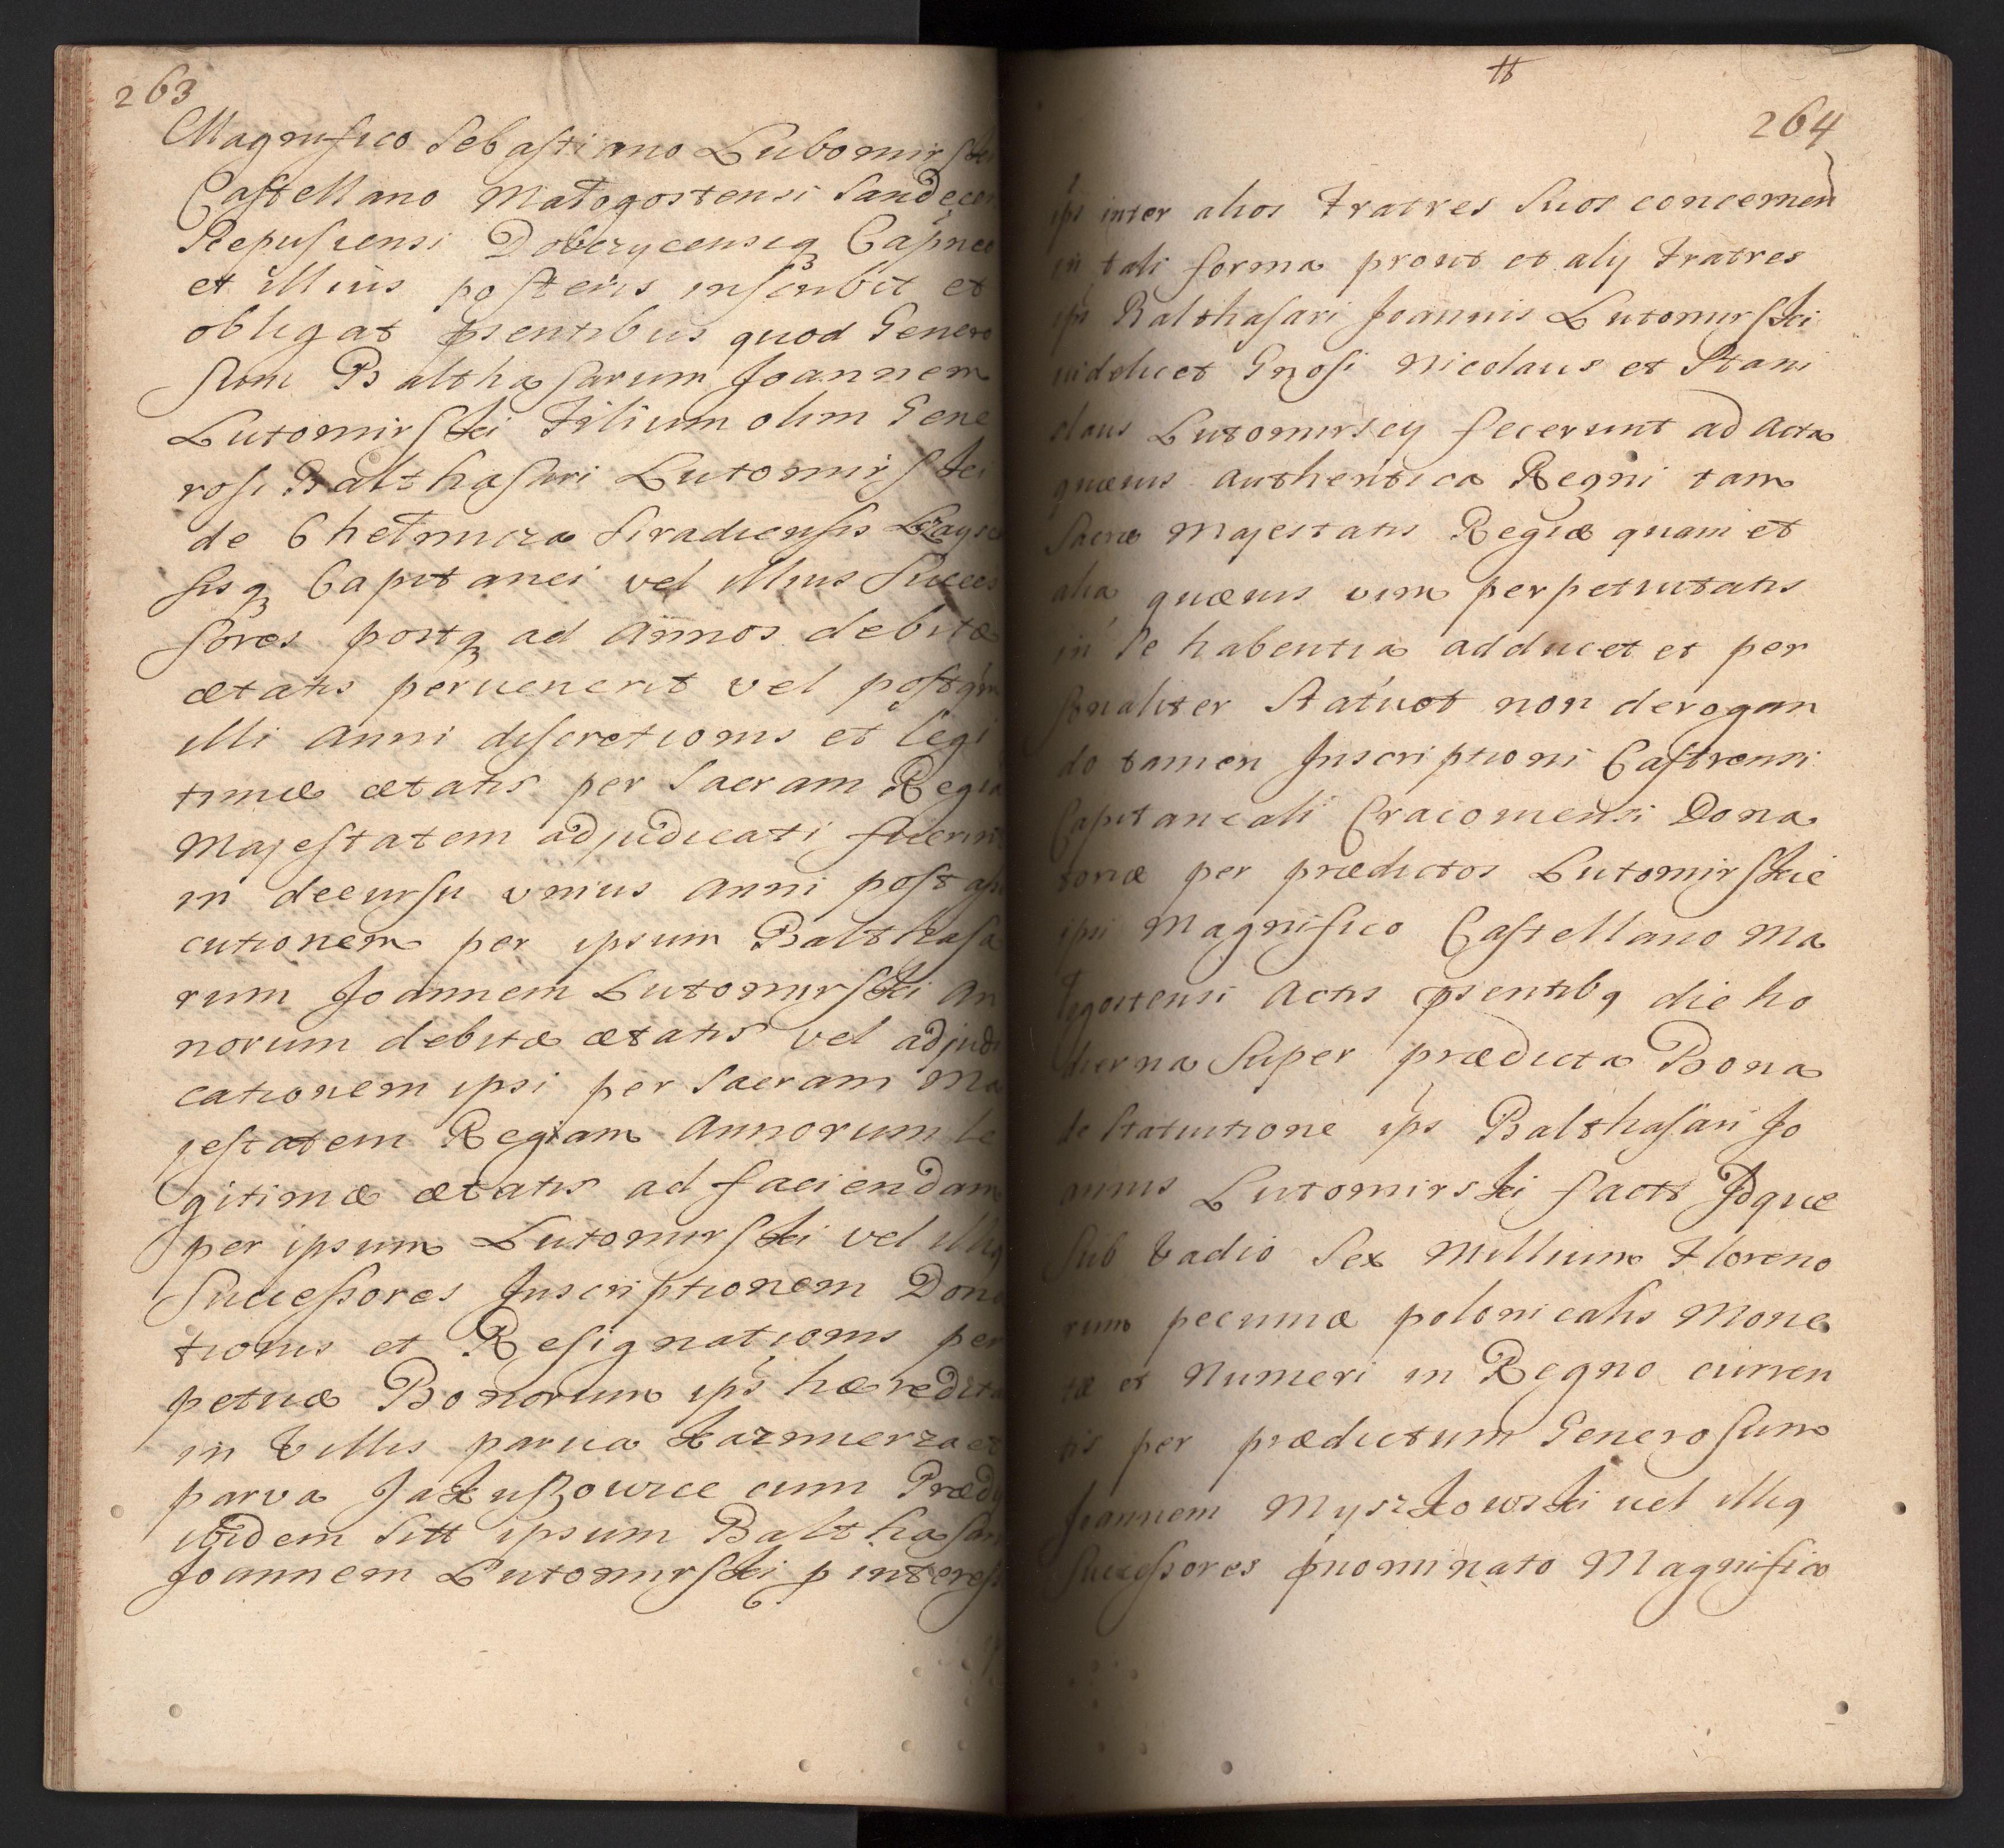 263
Magnifico Sebastiano Lubomirski
Castellano Małogostensi Sandecen
Scepusiensi Dobczycensiq Capneo
et illius posteris inscribit et
obligat psentibus quod Genero
sum Balthasarum Joannem
Lutomirski Filium olim Gene
rosi Balthasari Lutomirski
de Chełmicza Siradiensis
sisq Capitanei vel illius Succes
sores postq ad Annos debitæ
ætatis peruenerit vel postqm
illi Anni discretionis et legi
timæ ætatis per Sacram Regia
Majestatem adjudicati fuerint
in decursu vnius Anni post
cutionem per ipsum Balthasa
rum Joannem Lutomirski An
norum debitæ ætatis vel adjudi
cationem ipsi per Sacram Ma
jestatem Regiam Annorum le
gitimæ ætatis ad faciendam
per ipsum Lutomirski vel illiq
Successores Inscriptionem Dona
tionis et Resignationis per
petuæ Bonorum ips hæredita
in Villis parua Kazmierza et
parva Jakuszowice cum Prædy
ibidem Sitt ipsum Balthasar
Joannem Lutomirski p interess
tt
264
ips inter alios Fratres Suos concernen
in tali forma prout et alij Fratres
ips Balthasari Joannis Lutomirski
videlicet Gnosi Nicolaus et Stani
slaus Lutomirscy fecerunt ad Acta
quæuis Authentica Regni tam
Sacræ Majestatis Regiæ quam et
alia quæuis vim perpetuitatis
in Se habentia adducet et per
sonaliter Statuet non derogan
do tamen Inscriptioni Castrensi
Capitaneali Cracouiensi Dona
toriæ per prædictos Lutomirskie
ipsi Magnifico Castellano Ma
łogostensi Actis psentibq die ho
dierna Super prædicta Bona
de Statuitione ips Balthasari Jo
annis Lutomirski factæ Idque
Sub Vadio Sex Millium Floreno
rum pecuniæ polonicalis Mone
tæ et Numeri in Regno curren
tis per prædictum Generosum
Joannem Myszkowski vel illiq
Successores pnominato Magnifico